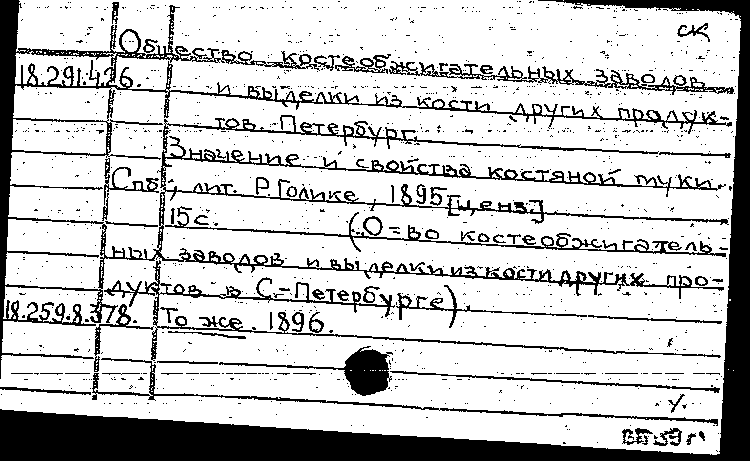 СК
Общество костеобжигательных заводов
18.291.4.26. и выделки из кости других продук-
тов. Петербург.
Значение и свойства костяной муки.
Спб, лит. Р. Голике, 1895 [ценз.]
15 с. (О-во костеобжигатель-
ных заводов и выделки из кости других про-
дуктов в С.-Петербурге).
18.259.8.378. То же. 1896.